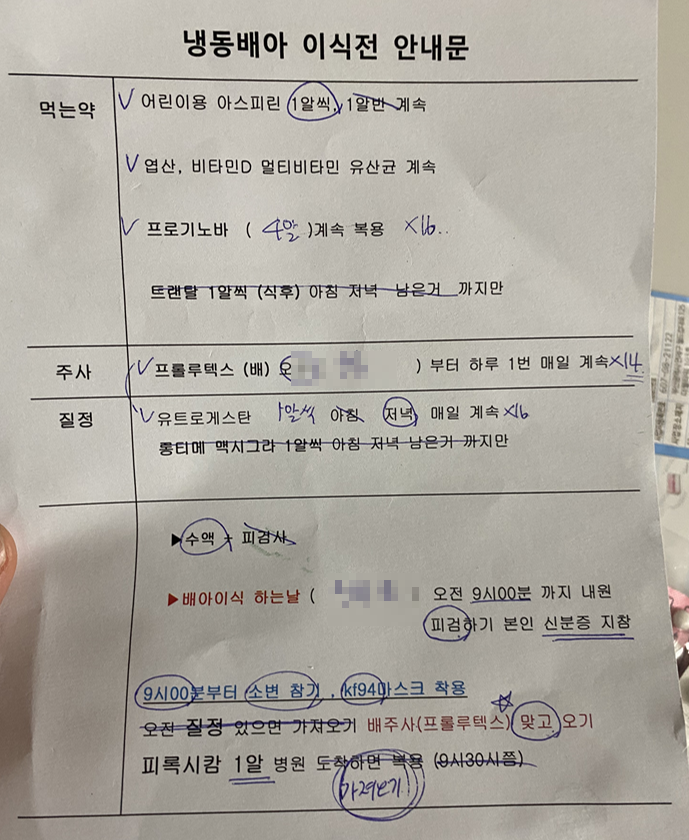 냉동배아 이식전 안내문
먹는약
V 어린이용 아스피린 1알씩, 1알반 계속
V 엽산, 비타민D 멀티비타민 유산균 계속
V 프로기노바 ( 4알 )계속 복용 x16..
트랜탈 1알씩 (식후) 아침 저녁 남은거 까지만
주사
V 프롤루텍스 (배) 오 ) 부터 하루 1번 매일 계속 x14
질정
V 유트로게스탄 1알씩 아침 저녁 매일 계속 x16
롱티메 맥시그라 1알씩 아침 저녁 남은거 까지만
▶수액 + 피검사
▶배아이식 하는날 ( 오전 9시00분 까지 내원
피검하기 본인 신분증 지참
9시00분부터 소변 참기 , kf94마스크 착용
오전 질정 있으면 가져오기 배주사(프롤루텍스) ☆ 맞고 오기
피록시캄 1알 병원 도착하면 복용 (9시30시쯤)
가져오기!!
607-98-21122